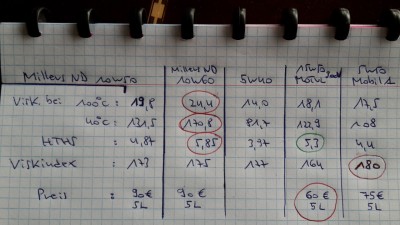 Millers ND 10W50 Millers ND 10W60 5W40 15W50 Motul 5W50 Mobil 1
Visk. bei 100°C: 19,8 24,4 14,0 18,1 17,5
40°C: 131,5 170,8 81,7 122,9 108
HTHS: 4,87 5,85 3,97 5,3 4,4
Viskindex: 173 175 177 164 180
Preis: 90€ 90€ 60€ 75€
5L 5L 5L 5L